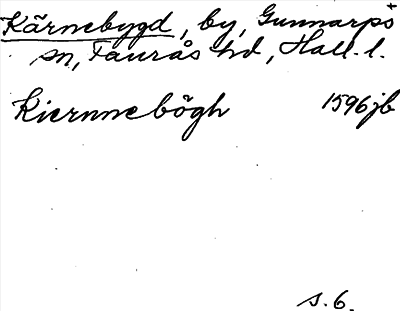 Kärnebygd, by, Gunnarps
sn, Faurås hd, Hall. l.
Kiernnebögh 1596 jb
s. 6.